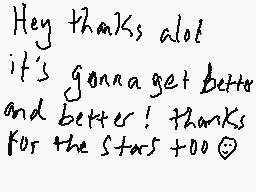 Hey thanks alot
it's gonna get better
and better! thanks
for the stars too